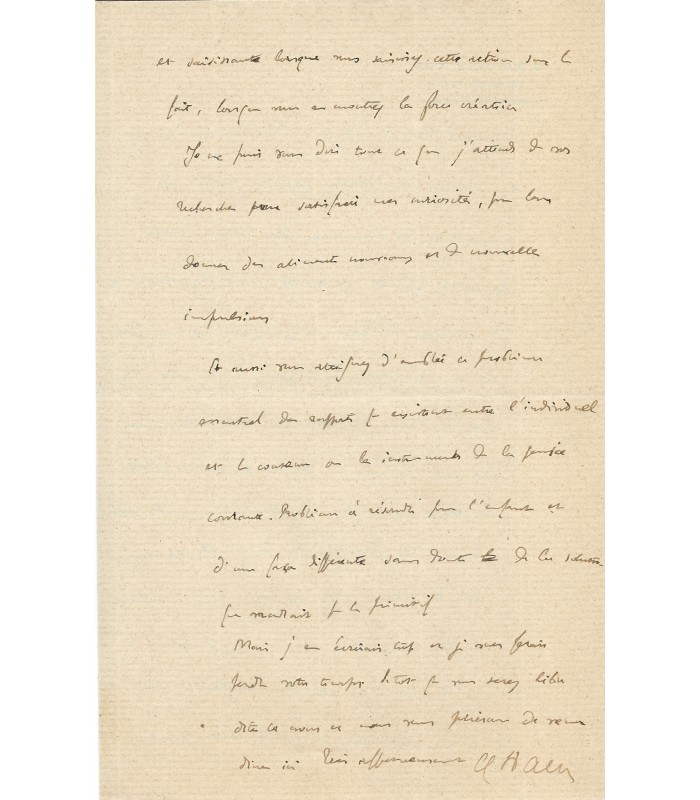 et saisissante lorsque vous saisissez cette action sur le
fait, lorsque vous en montrez la force créatrice
Je ne puis vous dire tout ce que j'attends de vos
recherches pour satisfaire mes curiosités, pour leur
donner des aliments nouveaux et de nouvelles
impulsions
Et aussi vous atteignez d'emblée ce problème
essentiel des rapports qui existent entre l'individuel
et le commun ou les instruments de la pensée
commune. Problème à résoudre pour l'enfant et
d'une façon différente sans doute de la solution
qui vaudrait pour le primitif
Mais j'en écrirais trop et je vous ferais
perdre votre temps. Sitôt que vous serez libre
dites le nous
dîner ici Très affectueusement